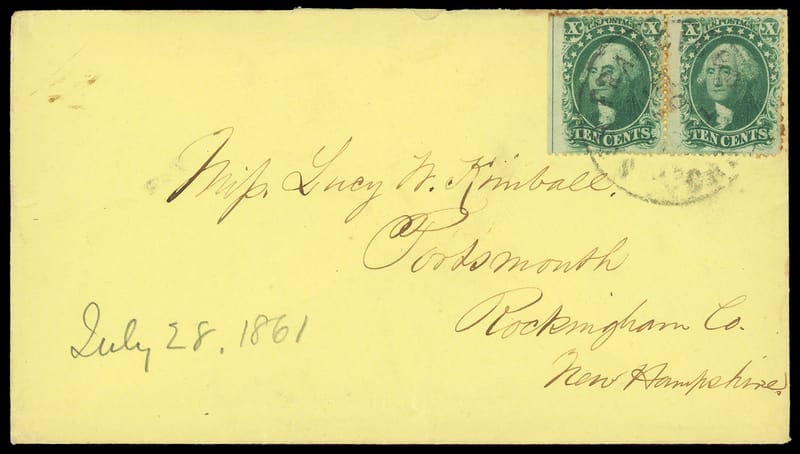 X U.S. POSTAGE X X U.S. POSTAGE X
TEN CENTS TEN CENTS
Miss. Lucy W. Kimball.
Portsmouth
Rockingham Co.
New Hampshire.
July 28, 1861